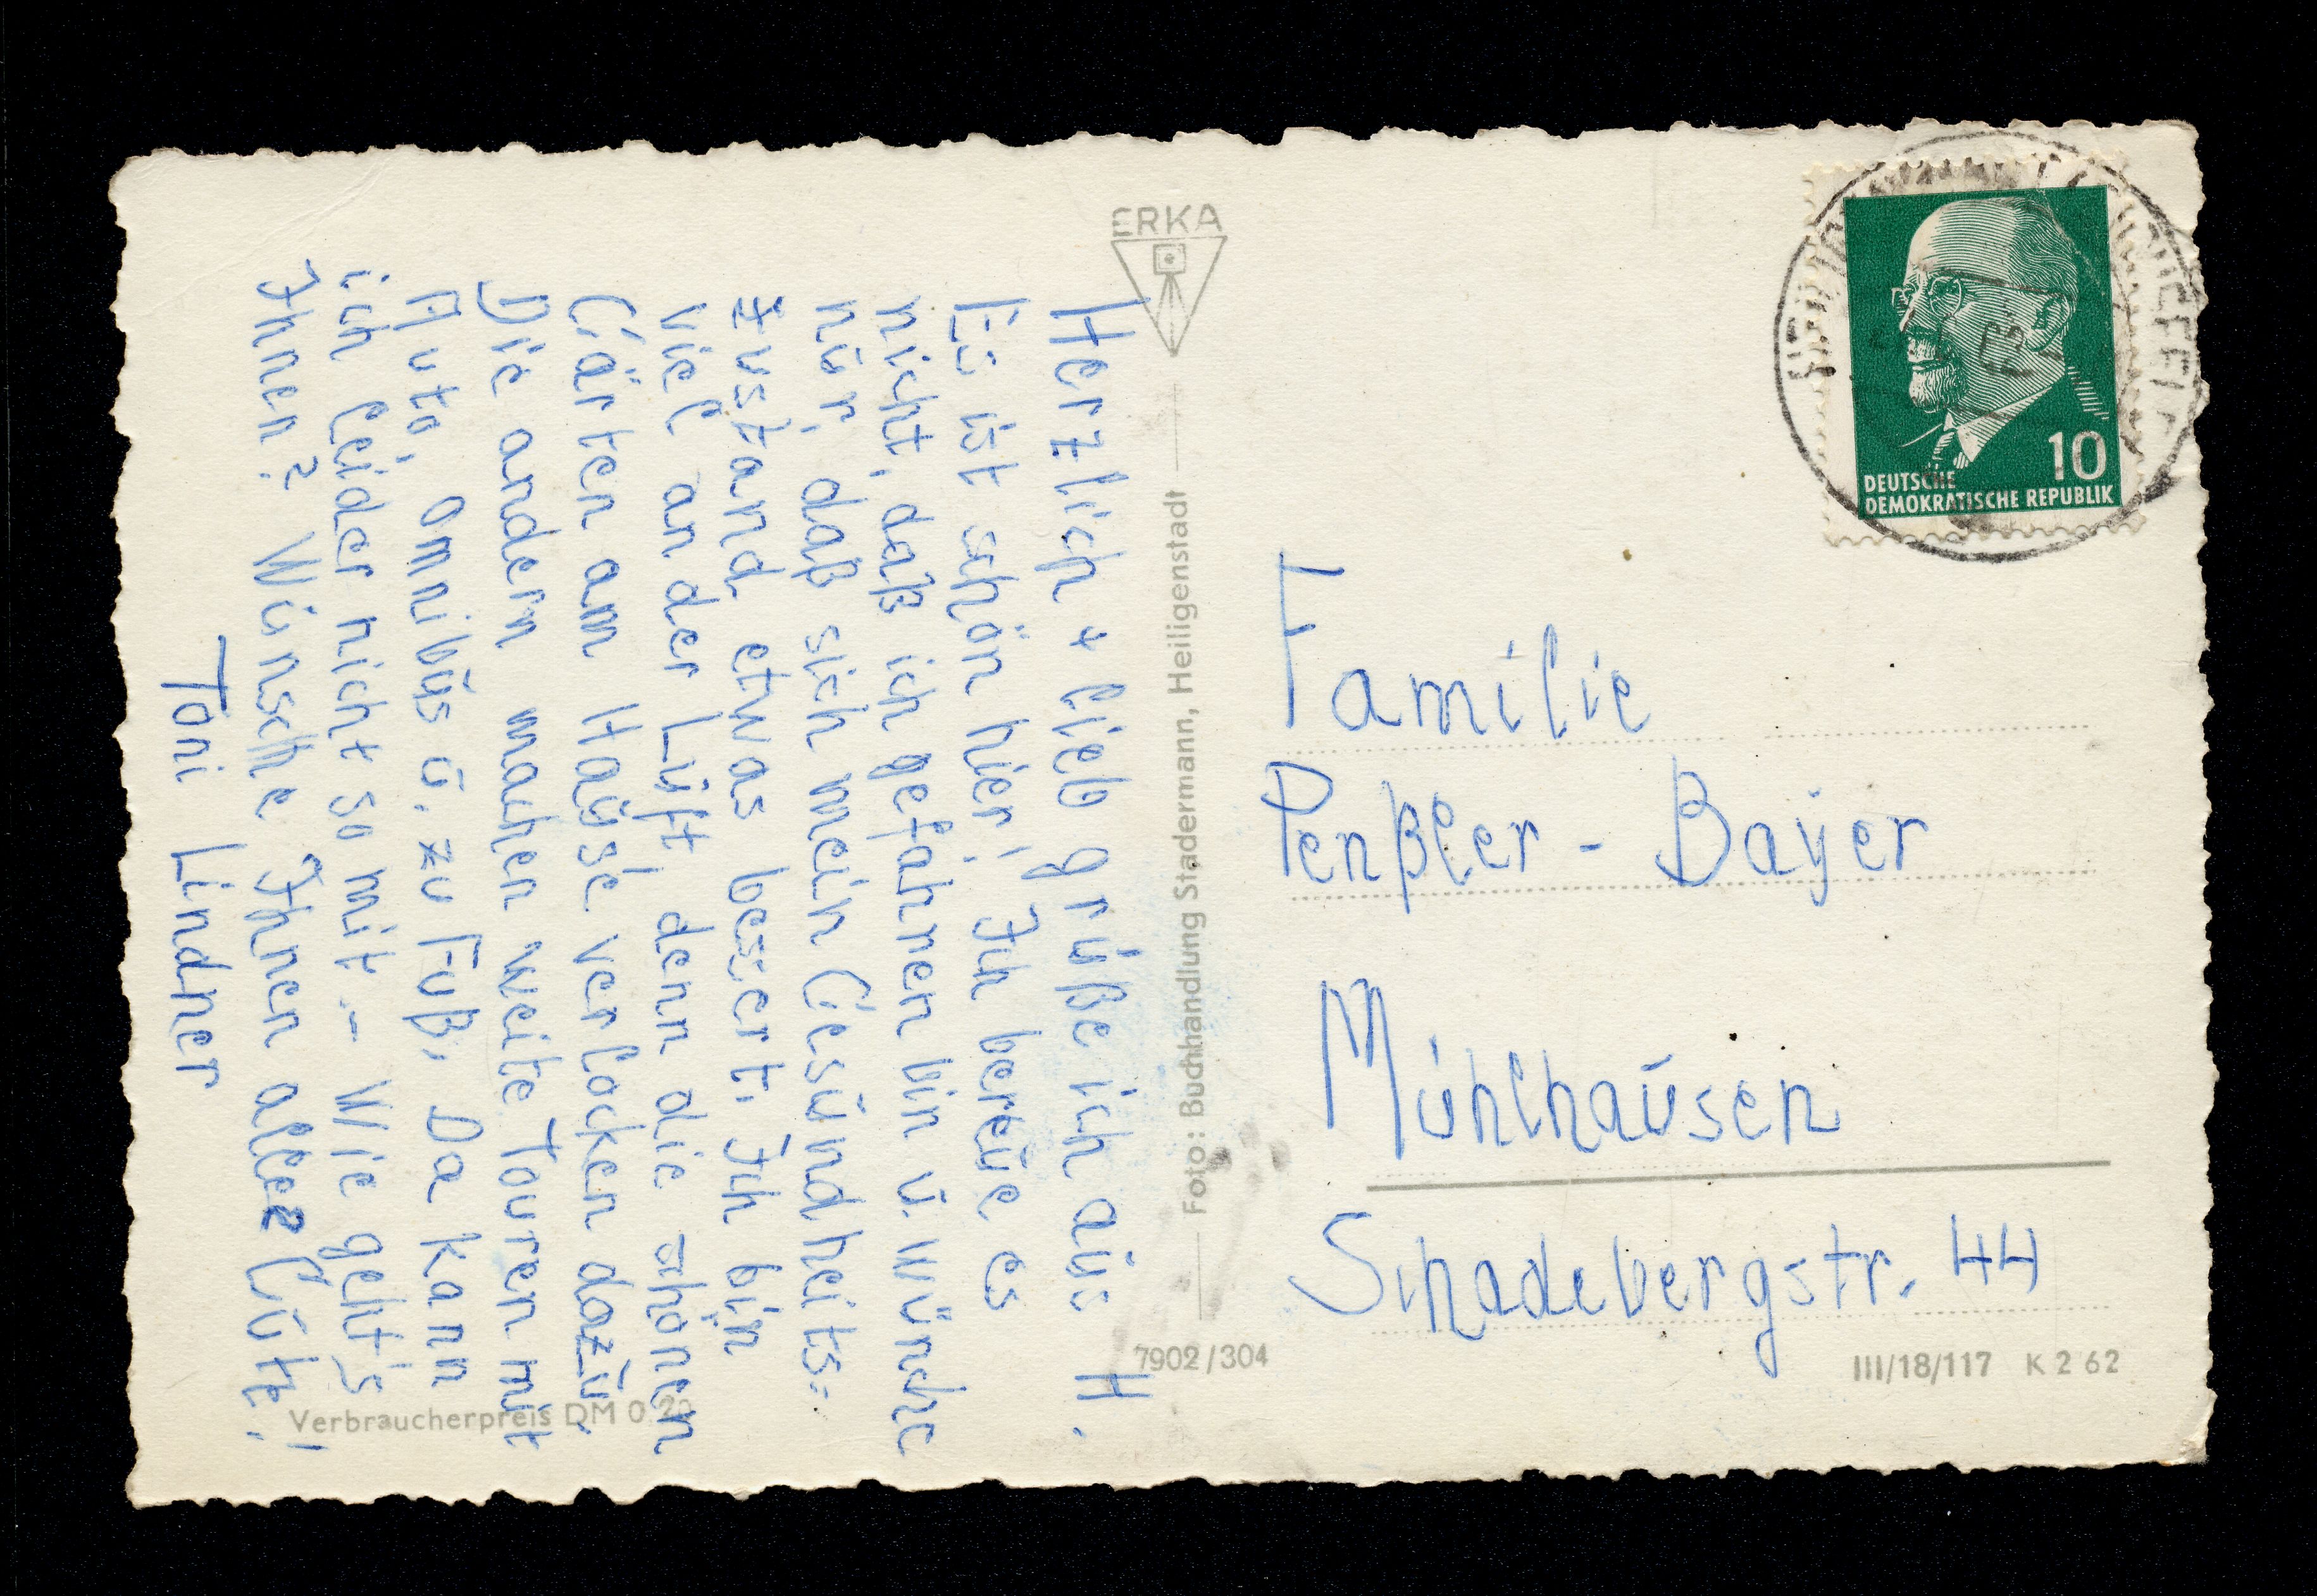 Herzlich + lieb grüße ich aus H.
Es ist schön hier, Ich bereue es
nicht, daß ich gefahren bin u. wünsche
nur, daß sich mein Gesundheits-
zustand etwas bessert. Ich bin
viel an der Luft, denn die schönen
Gärten am Hause verlocken dazu.
Die andern machen weite Touren mit
Auto, Omnibus u. zu Fuß. Da kann
ich leider nicht so mit. - Wie geht's
Ihnen? Wünsche Ihnen alles Gute!
Toni Lindner
ERKA
Foto: Buchhandlung Stadermann, Heiligenstadt
7902/304
Verbraucherpreis DM 0.20
10
DEUTSCHE
DEMOKRATISCHE REPUBLIK
Familie
Penßler - Bayer
Mühlhausen
Schadebergstr. 44
III/18/117 K 2 62